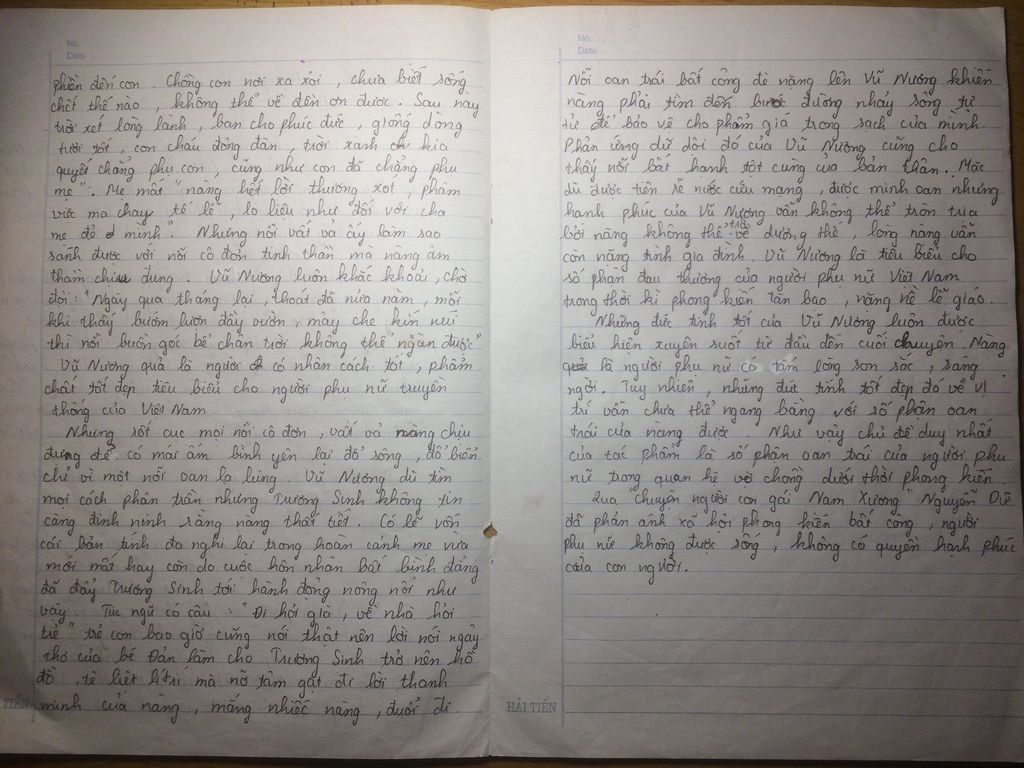 No.
Date
phiền đến con. Chồng con nơi xa xôi, chưa biết sống
chết thế nào, không thể về đền ơn được. Sau này
trời xét lòng lành, ban cho phúc đức, giống dòng
tươi tốt, con cháu đông đàn, trời xanh kia
quyết chẳng phụ con, cũng như con đã chẳng phụ
mẹ". Mẹ mất "nàng hết lời thương xót, phàm
việc ma chay tế lễ, lo liệu như đối với cha
mẹ đẻ mình". Nhưng nỗi vất vả ấy làm sao
sánh được với nỗi cô đơn tinh thần mà nàng âm
thầm chịu đựng. Vũ Nương luôn khắc khoải, chờ
đợi: "Ngày qua tháng lại, thoắt đã nửa năm, mỗi
khi thấy bướm lượn đầy vườn, mây che kín núi
thì nỗi buồn góc bể chân trời không thể ngăn được"
Vũ Nương quả là người có nhân cách tốt, phẩm
chất tốt đẹp tiêu biểu cho người phụ nữ truyền
thống của Việt Nam
Nhưng rốt cục mọi nỗi cô đơn, vất vả nàng chịu
đựng để có mái ấm bình yên lại đổ sông, đổ biển
chỉ vì một nỗi oan lạ lùng. Vũ Nương dù tìm
mọi cách phân trần nhưng Trương Sinh không tin
càng đinh ninh rằng nàng thất tiết. Có lẽ vốn
cái bản tính đa nghi lại trong hoàn cảnh mẹ vừa
mới mất hay còn do cuộc hôn nhân bất bình đẳng
đã đẩy Trương Sinh tới hành động nông nổi như
vậy. Tục ngữ có câu: "Đi hỏi già, về nhà hỏi
trẻ" trẻ con bao giờ cũng nói thật nên lời nói ngây
thơ của bé Đản làm cho Trương Sinh trở nên hồ
đồ, tê liệt lí trí mà nỡ tâm gạt đi lời thanh
minh của nàng, mắng nhiếc nàng, đuổi đi.
TIẾN
No.
Date
Nỗi oan trái bất công đè nặng lên Vũ Nương khiến
nàng phải tìm đến bước đường nhảy sông tự
tử để bảo vệ cho phẩm giá trong sạch của mình.
Phản ứng dữ dội đó của Vũ Nương cũng cho
thấy nỗi bất hạnh tột cùng của bản thân. Mặc
dù được tiên rẽ nước cứu mạng, được minh oan nhưng
hạnh phúc của Vũ Nương vẫn không thể tròn trịa
bởi nàng không thể trở về dương thế, lòng nàng vẫn
còn nặng tình gia đình. Vũ Nương là tiêu biểu cho
số phận đau thương của người phụ nữ Việt Nam
trong thời kì phong kiến tàn bạo, nặng nề lễ giáo.
Những đức tính tốt của Vũ Nương luôn được
biểu hiện xuyên suốt từ đầu đến cuối chuyện. Nàng
quả là người phụ nữ có tấm lòng son sắc, sáng
ngời. Tuy nhiên, những đức tính tốt đẹp đó về vị
trí vẫn chưa thể ngang bằng với số phận oan
trái của nàng được. Như vậy chủ đề duy nhất
của tác phẩm là số phận oan trái của người phụ
nữ trong quan hệ vợ chồng dưới thời phong kiến
Qua "Chuyện người con gái Nam Xương" Nguyễn Dữ
đã phản ánh xã hội phong kiến bất công, người
phụ nữ không được sống, không có quyền hạnh phúc
của con người.
HẢI TIẾN